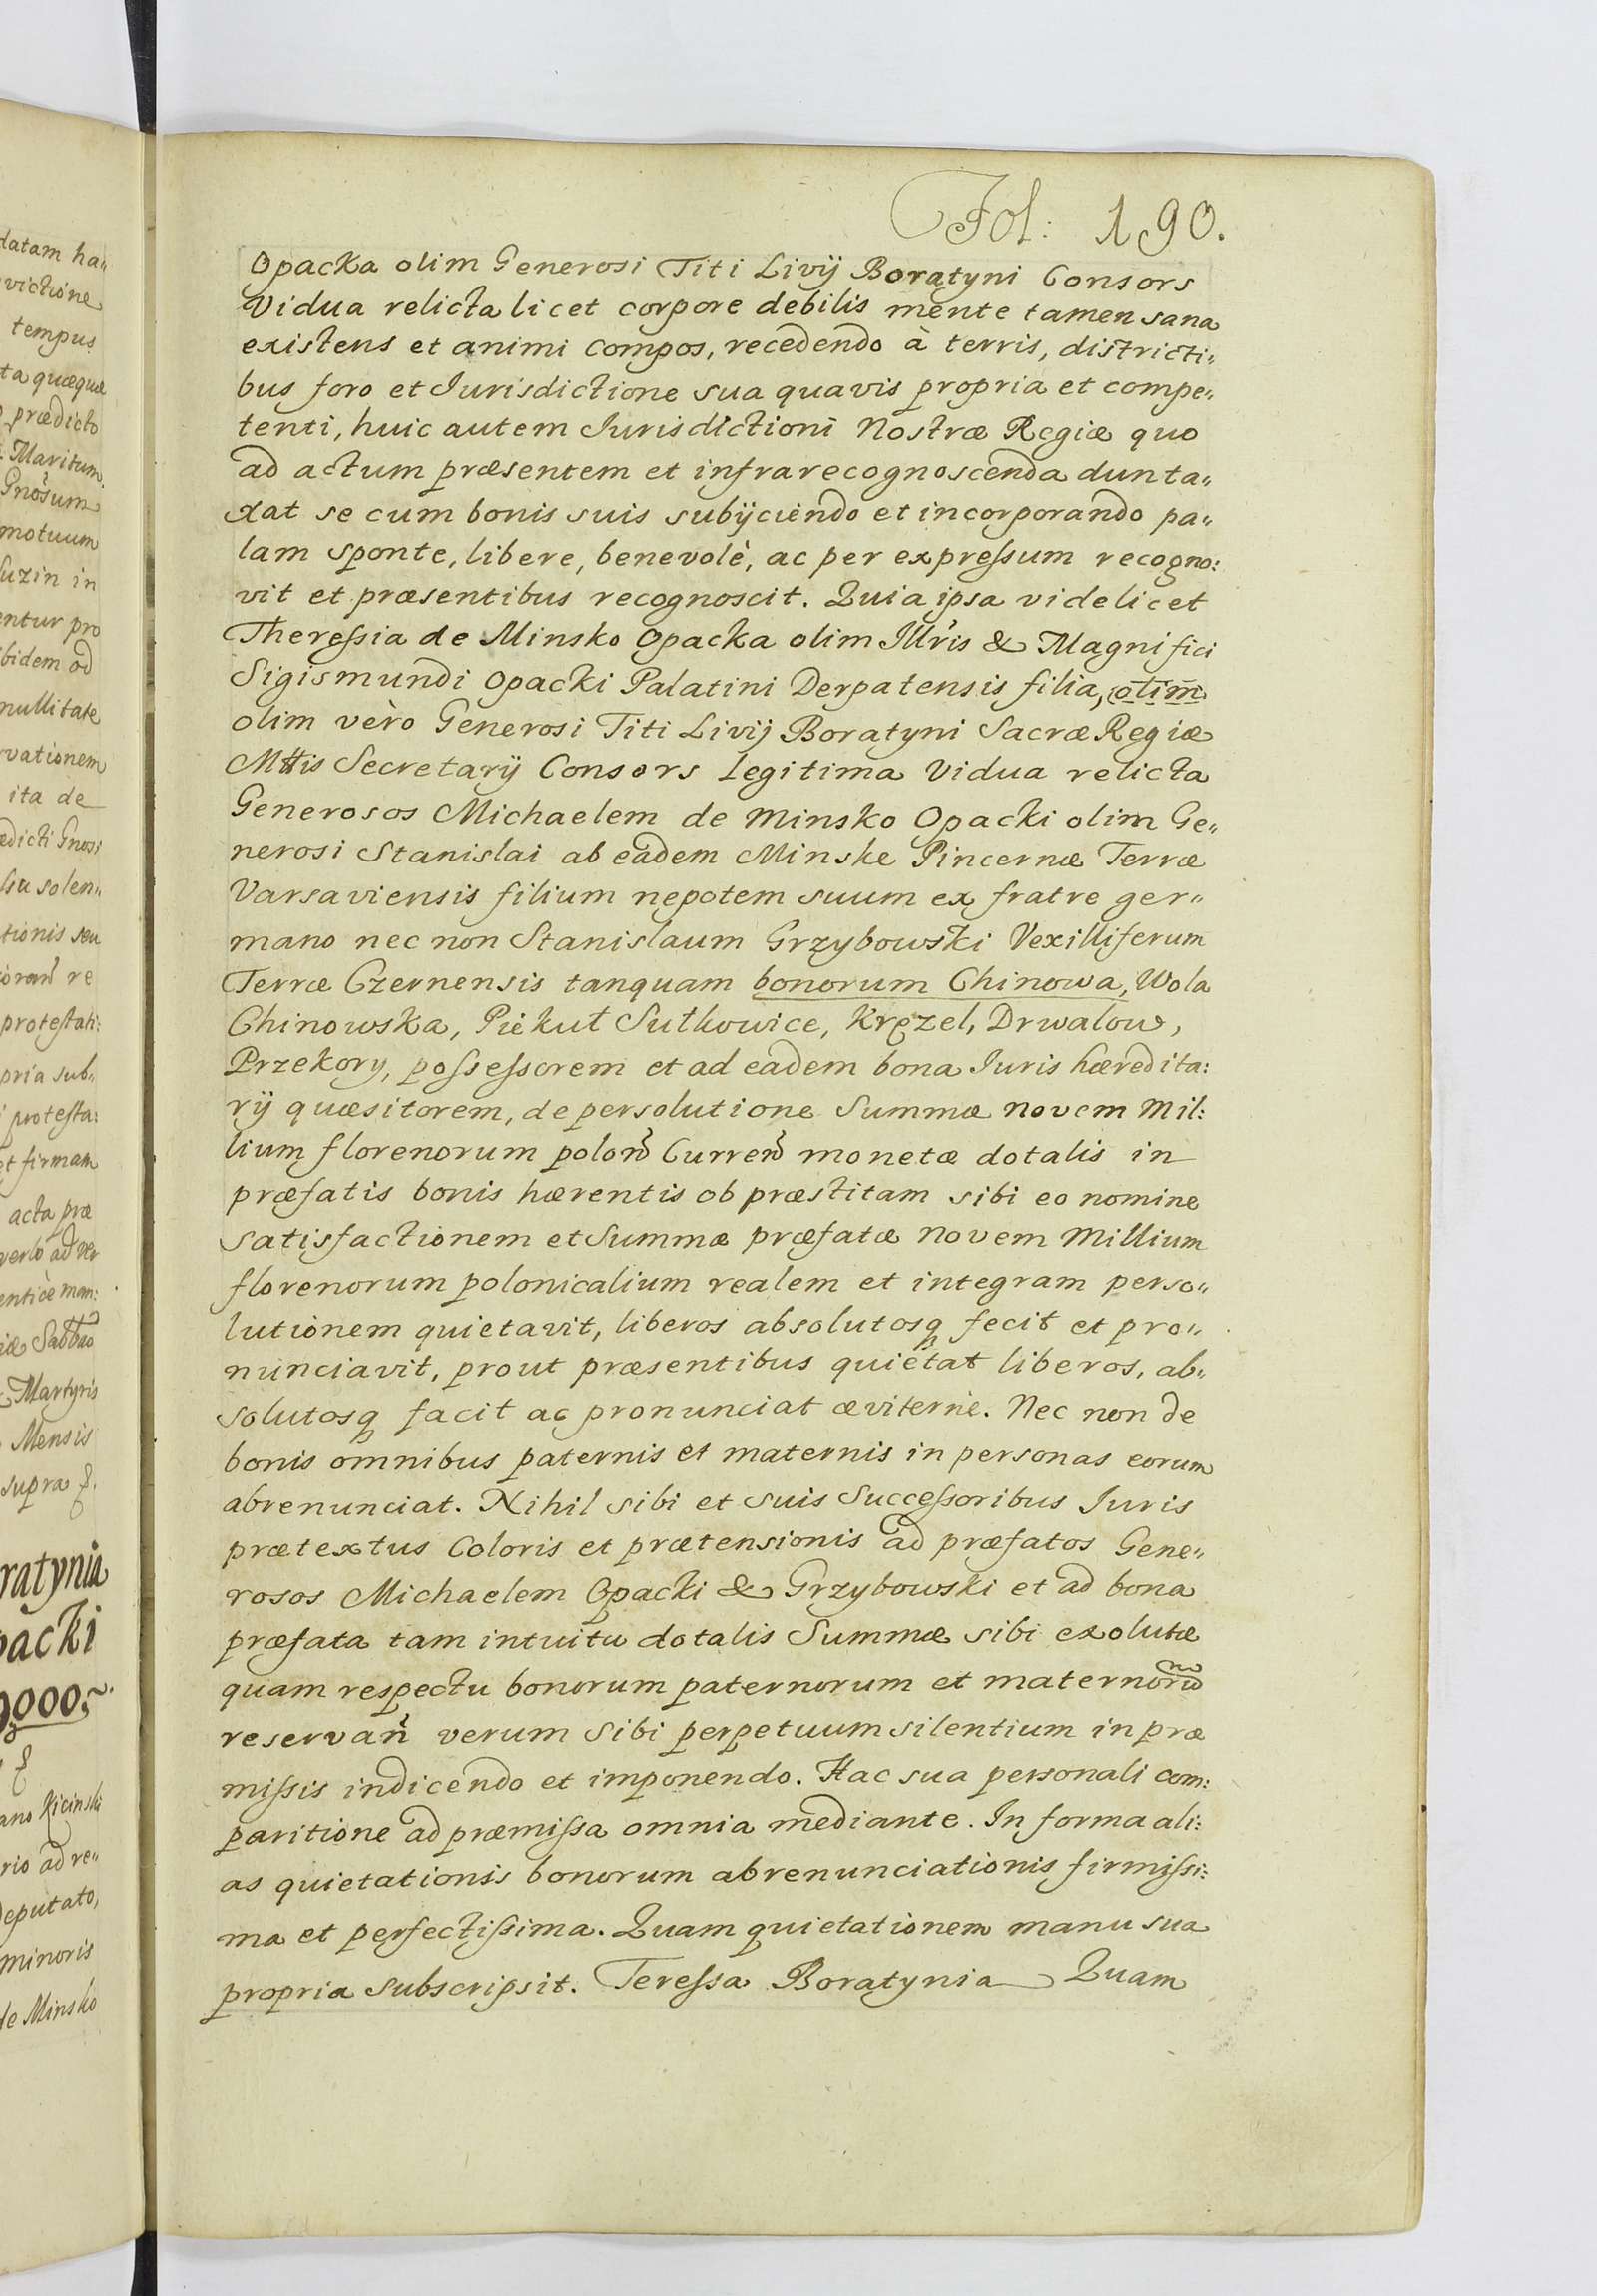 datam ha„
victione
tempus
ta quæquæ
prædicto
Maritum
Gnosum
motuum
Suzin in
entur pro
ibidem ad
nullitate
rvationem
ita de
ædicti Gnosi
solen„
tionis seu
re
protestati:
pria sub„
protesta:
et firmam
acta præ
verbo ad ver
enticè man:
Sabbato
Martyris
Mensis
supra
ratynia
packi
9000
ano Kicinski
rio ad re„
deputato,
minoris
de Minsko
Fol: 190.
Opacka olim Generosi Titi Livij Boratyni Consors
Vidua relicta licet corpore debilis mente tamen sana
existens et animi compos, recedendo à terris, districti„
bus foro et Jurisdictione sua quavis propria et compe„
tenti, huic autem Jurisdictioni Nostræ Regiæ quo
ad actum præsentem et infrarecognoscenda dunta„
xat se cum bonis suis subijciendo et incorporando pa„
lam sponte, libere, benevolè, ac per expressum recogno:
vit et præsentibus recognoscit. Quia ipsa videlicet
Theressia de Minsko Opacka olim Illris & Magnifici
Sigismundi Opacki Palatini Derpatensis filia, olim
olim vèro Generosi Titi Livij Boratyni Sacræ Regiæ
Mttis Secretarij Consors Legitima Vidua relicta
Generosos Michaelem de Minsko Opacki olim Ge„
nerosi Stanislai ab eadem Minske Pincernæ Terræ
Varsaviensis filium nepotem suum ex fratre ger„
mano nec non Stanislaum Grzybowski Vexilliferum
Terræ Czernensis tanquam bonorum Chinowa, Wola
Chinowska, Piekut Sułkowice, Kręzel, Drwalow,
Przekory, possessorem et ad eadem bona Juris hæredita:
rij quæsitorem, de persolutione Summæ novem Mil:
lium florenorum polon Curren monetæ dotalis in
præfatis bonis hærentis ob præstitam sibi eo nomine
satisfactionem et Summæ præfatæ Novem Millium
florenorum polonicalium realem et integram perso„
lutionem quietavit, liberos absolutosq fecit et pro„
nunciavit, prout præsentibus quietat liberos, ab„
solutosq facit ac pronunciat æviternè. Nec non de
bonis omnibus paternis et maternis in personas eorum
abrenunciat. Nihil sibi et suis Successoribus Juris
prætextus Coloris et prætensionis ad præfatos Gene„
rosos Michaelem Opacki & Grzybowski et ad bona
præfata tam intuitu dotalis Summæ sibi exolutæ
quam respectu bonorum paternorum et maternorū
reservan verum sibi perpetuum silentium in præ
missis indicendo et imponendo. Hac sua personali com:
paritione ad præmissa omnia mediante. In forma ali:
as quietationis bonorum abrenunciationis firmissi:
ma et perfectissima. Quam quietationem manu sua
propria subscripsit. Teressa Boratynia Quam